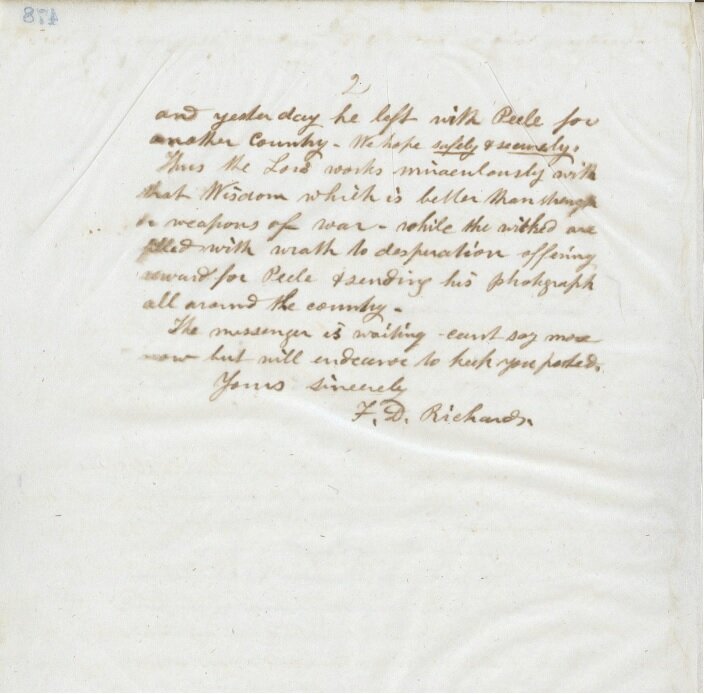 478
2
and yesterday he left with Peele for
another Country - We hope safely & securely.
Thus the Lord works miraculously with
that Wisdom which is better than strength
or weapons of war - while the wicked are
filled with wrath to desperation offering
reward for Peele & sending his photograph
all around the country -
The messenger is waiting - cant say more
now but will endeavor to keep you posted.
Yours sincerely
F. D. Richards.